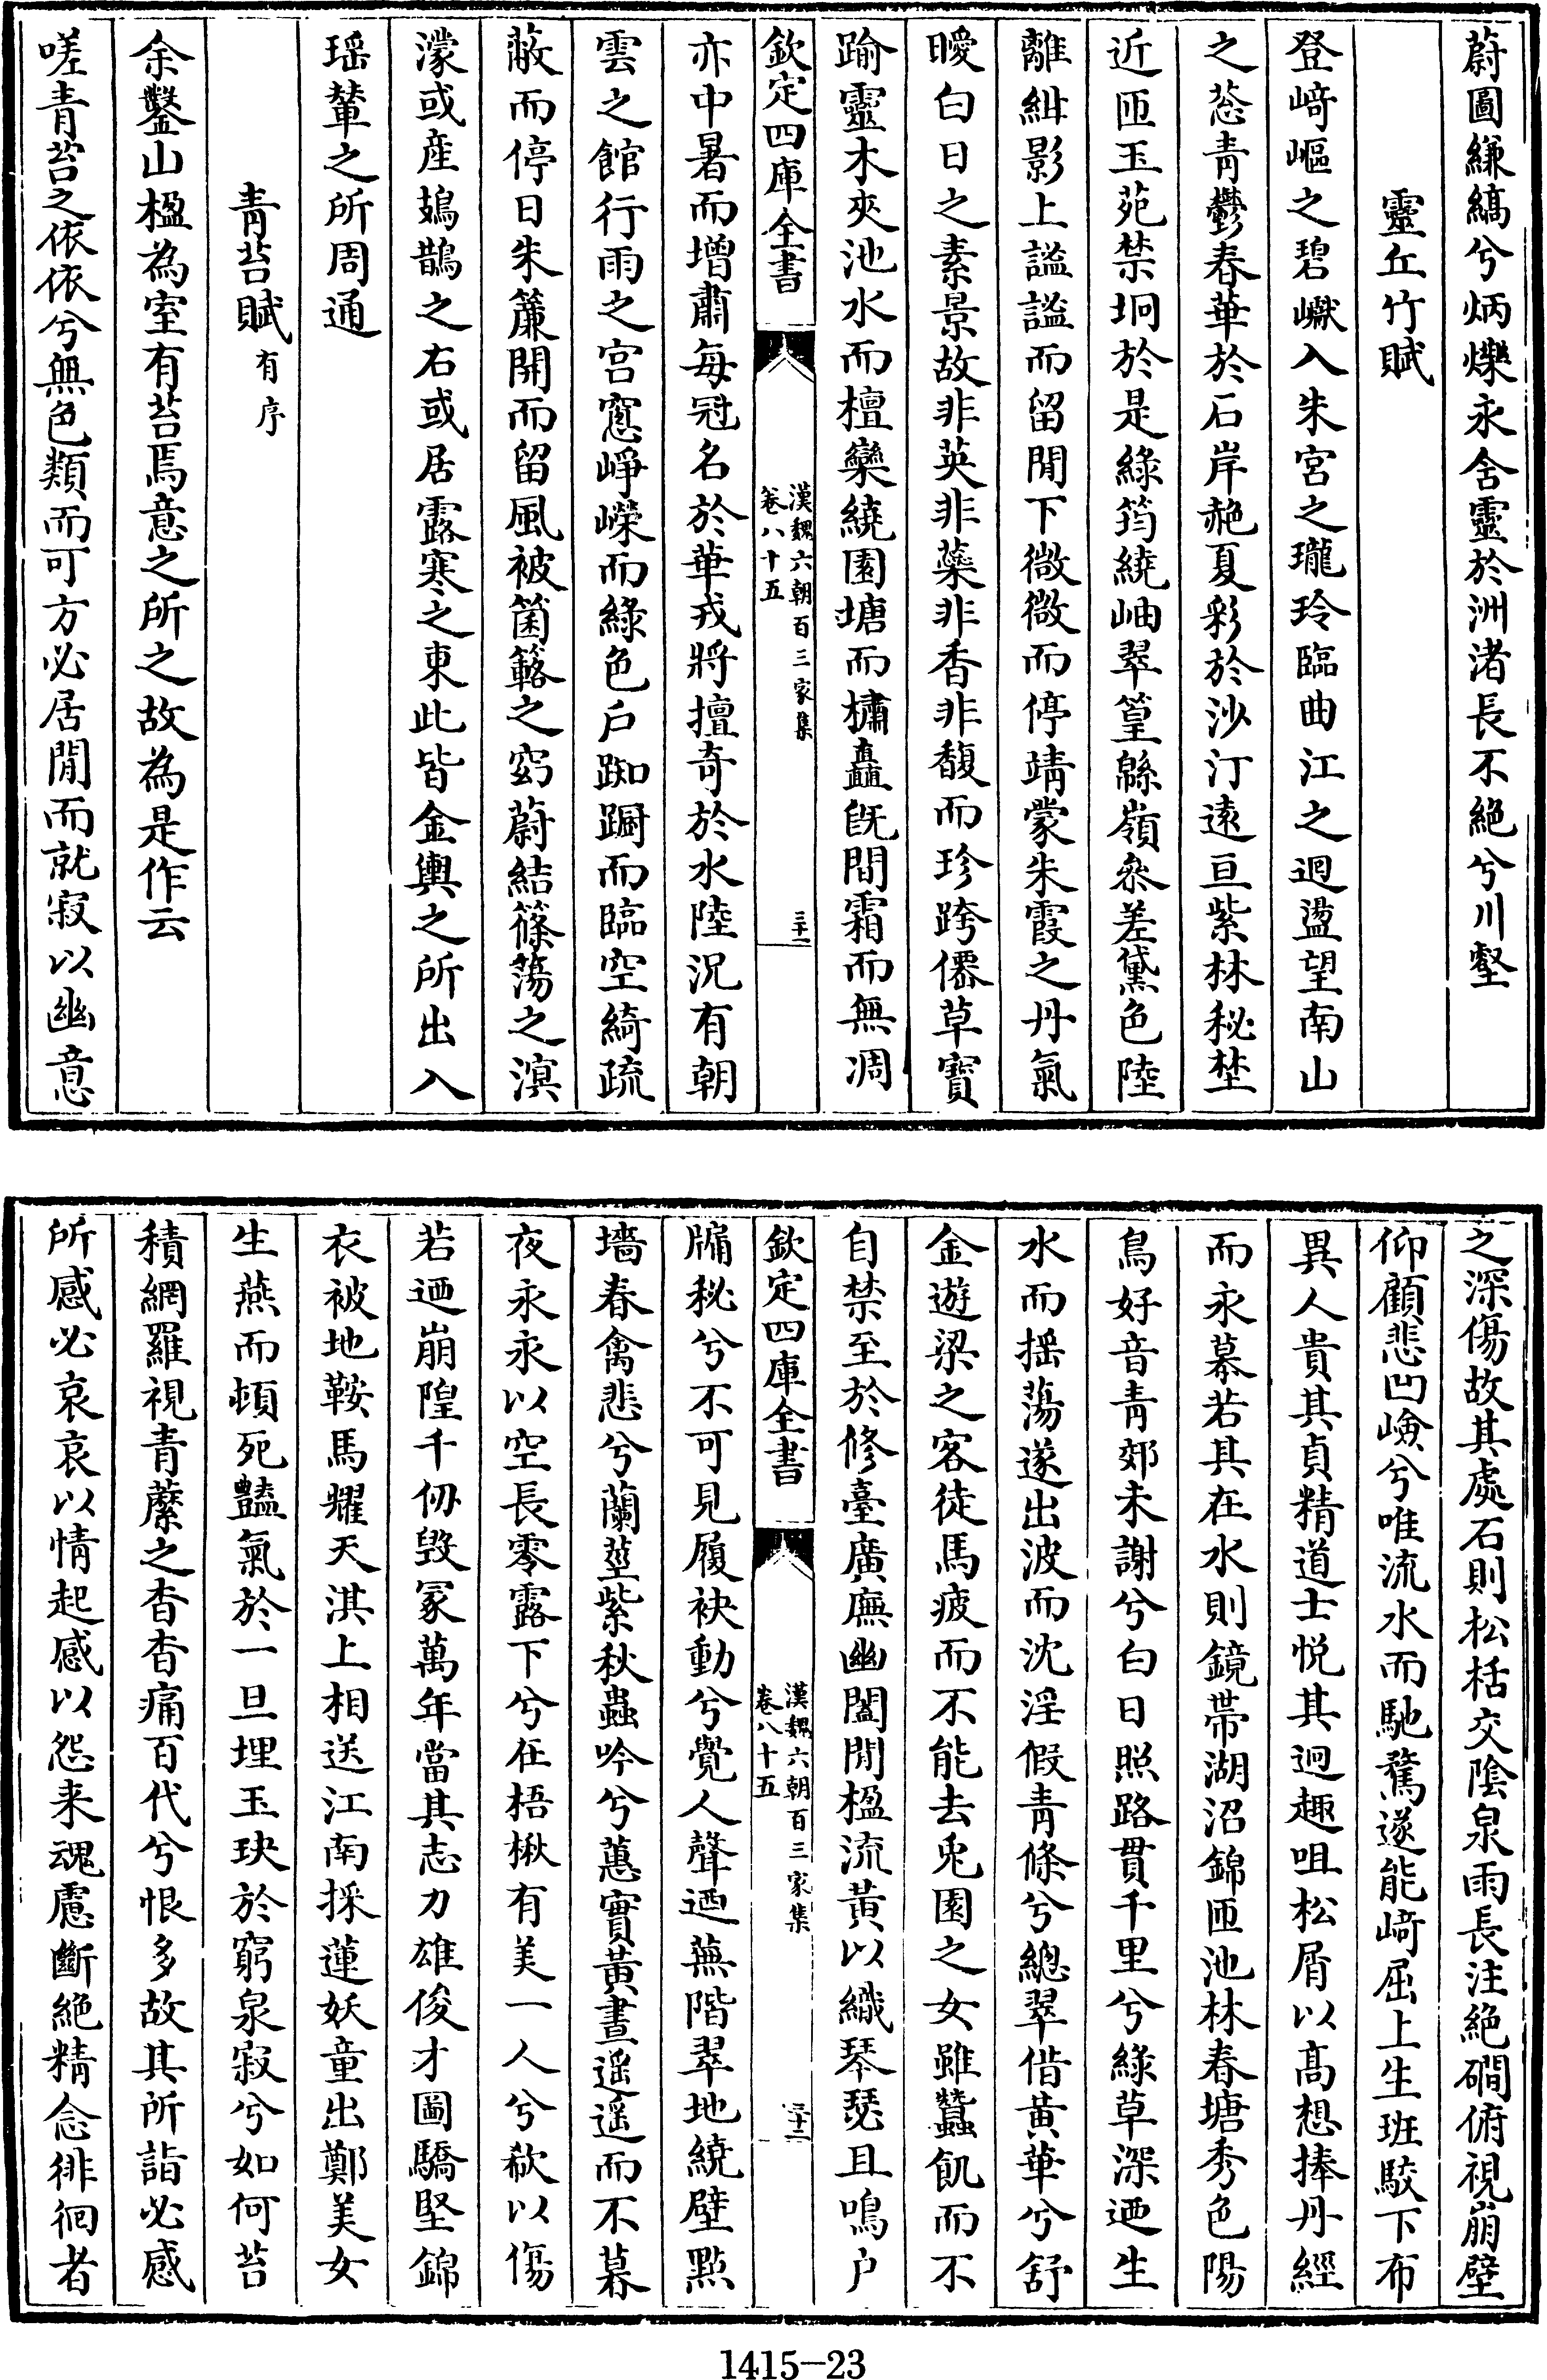 蔚圖縑縞兮炳爍永含靈於洲渚長不絕兮川壑
靈丘竹賦
登﨑嶇之碧巘入朱宮之瓏玲臨曲江之迴盪望南山
之葱青鬱春華於石岸赩夏彩於沙汀遠亘紫林祕埜
近匝玉苑禁坰於是綠筠繞岫翠篁緜嶺參差黛色陸
離紺影上謐謐而留閒下微微而停靖蒙朱霞之丹氣
曖白日之素景故非英非藥非香非馥而珍跨僊草寶
踰靈木夾池水而檀欒繞園塘而橚矗旣間霜而無凋
欽定四庫全書
漢魏六朝百三家集
卷八十五
三十一
亦中暑而增肅每冠名於華戎將擅奇於水陸況有朝
雲之館行雨之宮窻崢嶸而綠色户踟蹰而臨空綺疏
蔽而停日朱簾開而留風被箘簵之窈蔚結篠簜之溟
濛或産鳷鵲之右或居露寒之東此皆金輿之所出入
瑶輦之所周通
青苔賦有序
余鑿山楹為室有苔焉意之所之故為是作云
嗟青苔之依依兮無色類而可方必居閒而就寂以幽意
之深傷故其處石則松栝交陰泉雨長注絕磵俯視崩壁
仰顧悲凹嶮兮唯流水而馳騖遂能﨑屈上生班駮下布
異人貴其貞精道士悦其迥趣咀松屑以髙想捧丹經
而永慕若其在水則鏡帯湖沼錦匝池林春塘秀色陽
鳥好音青郊未謝兮白日照路貫千里兮綠草深迺生
水而揺蕩遂出波而沈淫假青條兮總翠借黃華兮舒
金遊梁之客徒馬疲而不能去兎園之女雖蠶飢而不
自禁至於修臺廣廡幽闔閒楹流黃以織琴瑟且鳴户
欽定四庫全書
漢魏六朝百三家集
卷八十五
三十二
牖秘兮不可見履袂動兮覺人聲迺蕪階翠地繞壁㸃
墻春禽悲兮蘭莖紫秋蟲吟兮蕙實黃晝遥遥而不暮
夜永永以空長零露下兮在梧楸有美一人兮欷以傷
若迺崩隍千仭毁冢萬年當其志力雄俊才圖驕堅錦
衣被地鞍馬耀天淇上相送江南採蓮妖童出鄭美女
生燕而頓死豔氣於一旦埋玉玦於窮泉寂兮如何苔
積網羅視青蘪之杳杳痛百代兮恨多故其所詣必感
所感必哀哀以情起感以怨来魂慮斷絶精念徘徊者
1415—23